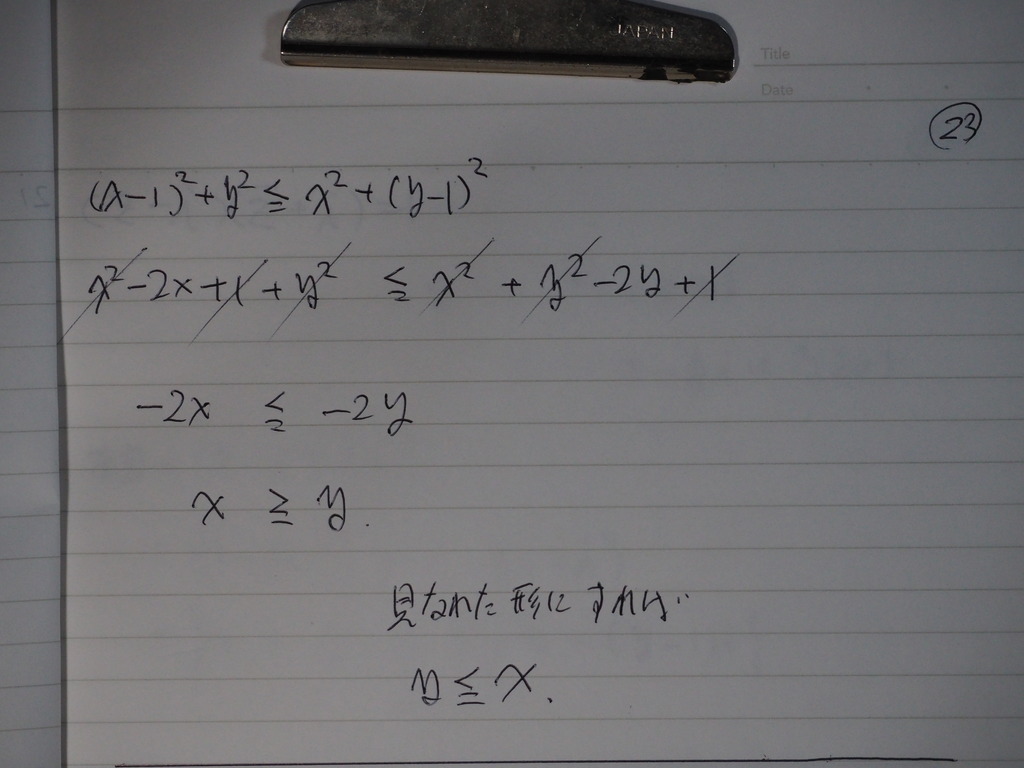 JAPAN
Title
Date
23
(x-1)²+y² ≦ x²+(y-1)²
x²-2x+1+y² ≦ x²+y²-2y+1
-2x ≦ -2y
x ≧ y.
見なれた形にすれば‥
y≦x.